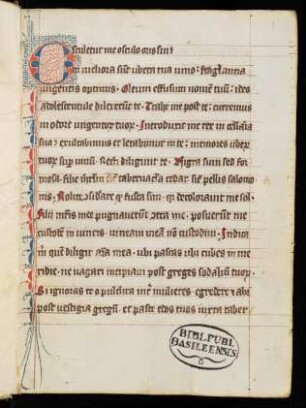 Osculetur me osculo oris sui
meliora sūt ubera tua vino: fraglantia
ungentis optimis. Oleum effusum nomē tuū: ideo
adolescentule dilexerūt te. Trahe me post te: curremus
in odorē ungentorꝝ tuoꝝ. Introduxit me rex in cellaria
sua: exultabimus et letabimur in te: memores uberū
tuoꝝ suꝑ vinū. Recti diligunt te. Nigra sum sed for
mosa. filie ihrlm̄ tabernacla cedar. sic̄ pelles salomo
nis. Nolite 9siderare ꝙ fusca sim. qꝛ decoloravit me sol.
Filii mr̄is mee pugnaverūt 9tra me. posuerūt me
custodē in vineis. vineam meā nō custodivi. Indica
m̄ quē diligit aīa mea. ubi pascas ubi cubes in me
ridie. ne vagari incipiam post greges sodaliū tuoꝝ.
Si ignoras te o pulcra int̄ mulieres. egredere ⁊ abi
post vestigia gregū. et pasce edos tuos iuxta taber
BIBL.PUBL.
BASILEENSIS